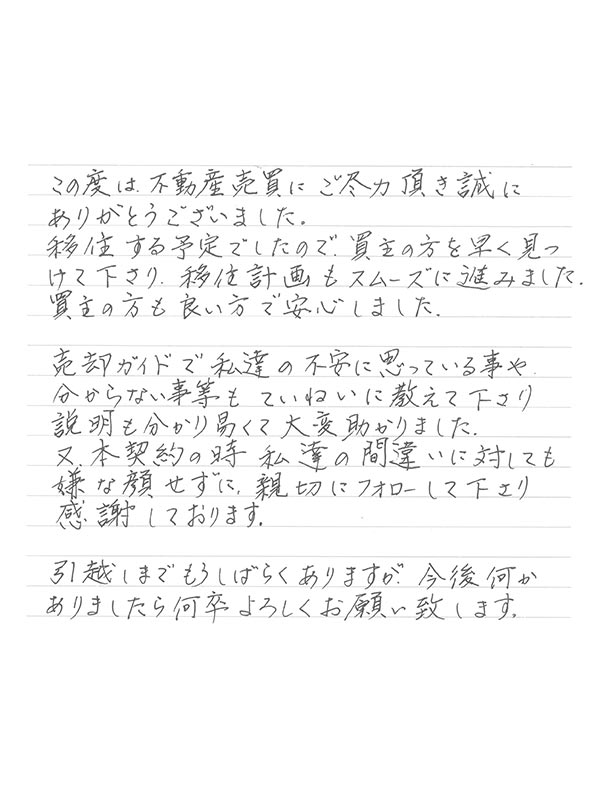 この度は、不動産売買にご尽力頂き誠に
ありがとうございました。
移住する予定でしたので、買主の方を早く見つ
けて下さり、移住計画もスムーズに進みました。
買主の方も良い方で安心しました。
売却ガイドで私達の不安に思っている事や、
分からない事等もていねいに教えて下さり
説明も分かり易くて大変助かりました。
又、本契約の時私達の間違いに対しても
嫌な顔せずに、親切にフォローして下さり
感謝しております。
引越しまでもうしばらくありますが、今後何か
ありましたら何卒よろしくお願い致します。